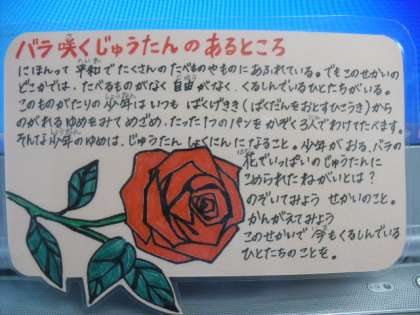 バラ咲くじゅうたんのあるところ
にほんって平和でたくさんのたべものやものにあふれている。でもこのせかいの
どこかでは、たべるものがなく自由がなく、くるしんでいるひとたちがいる。
このものがたりの少年はいつもばくげきき(ばくだんをおとすひこうき)から
のがれるゆめをみてめざめ、たった1つのパンをかぞく3人でわけてたべます。
そんな少年のゆめは、じゅうたんしょくにんになること。少年がおる、バラの
花でいっぱいのじゅうたんに
こめられたねがいとは?
のぞいてみようせかいのこと。
かんがえてみよう
このせかいで今もくるしんでいる
ひとたちのことを。